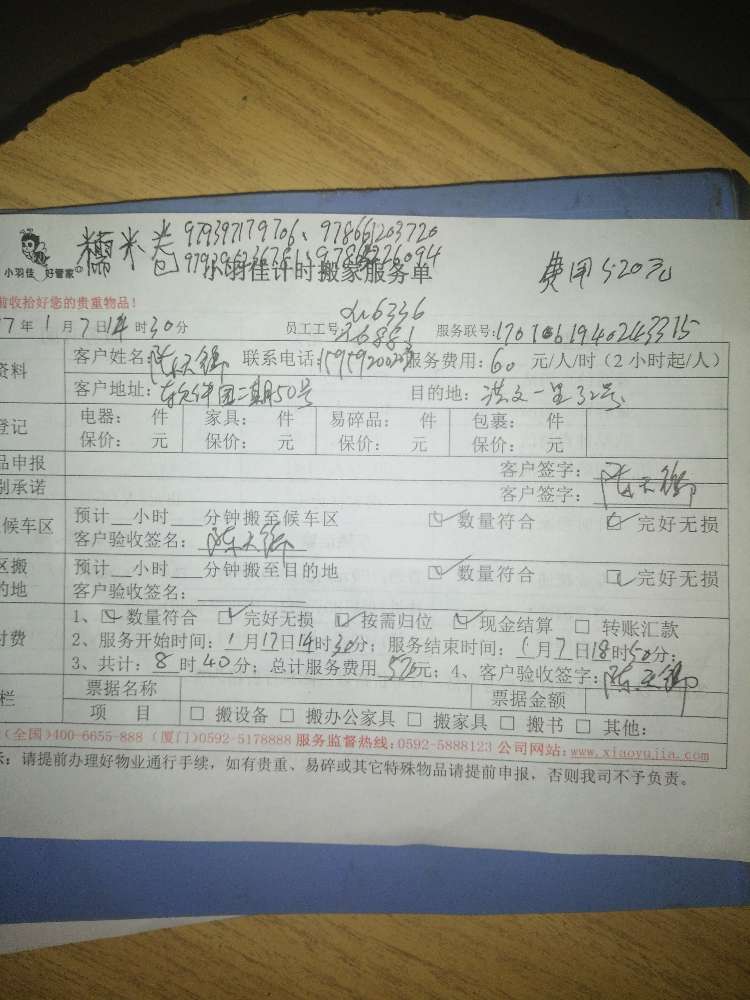 糯米卷 979397179706、978661203720
小羽佳 好管家
小羽佳计时搬家服务单 费用520元
前收拾好您的贵重物品!
7年1月7日14时30分 员工工号 服务联号:
资料 客户姓名: 联系电话: 服务费用:60 元/人/时(2小时起/人)
客户地址: 软件园二期50号 目的地:洪文一里32号
登记 电器: 件 家具: 件 易碎品: 件 包裹: 件
保价: 元 保价: 元 保价: 元 保价: 元
品申报 客户签字:
别承诺 客户签字:
候车区 预计__小时___分钟搬至候车区 数量符合 完好无损
客户验收签名:
区搬 预计__小时___分钟搬至目的地 数量符合 完好无损
的地 客户验收签名:
付费 1、数量符合 完好无损 按需归位 现金结算 转账汇款
2、服务开始时间:1月17日14时30分;服务结束时间:1月7日18时50分;
3、共计:8时40分;总计服务费用520元;4、客户验收签字:
栏 票据名称 票据金额
项 目 搬设备 搬办公家具 搬家具 搬书 其他:
(全国)400-6655-888 (厦门)0592-5178888 服务监督热线:0592-5888123 公司网站:www.xiaoyujia.com
示:请提前办理好物业通行手续,如有贵重、易碎或其它特殊物品请提前申报,否则我司不予负责。